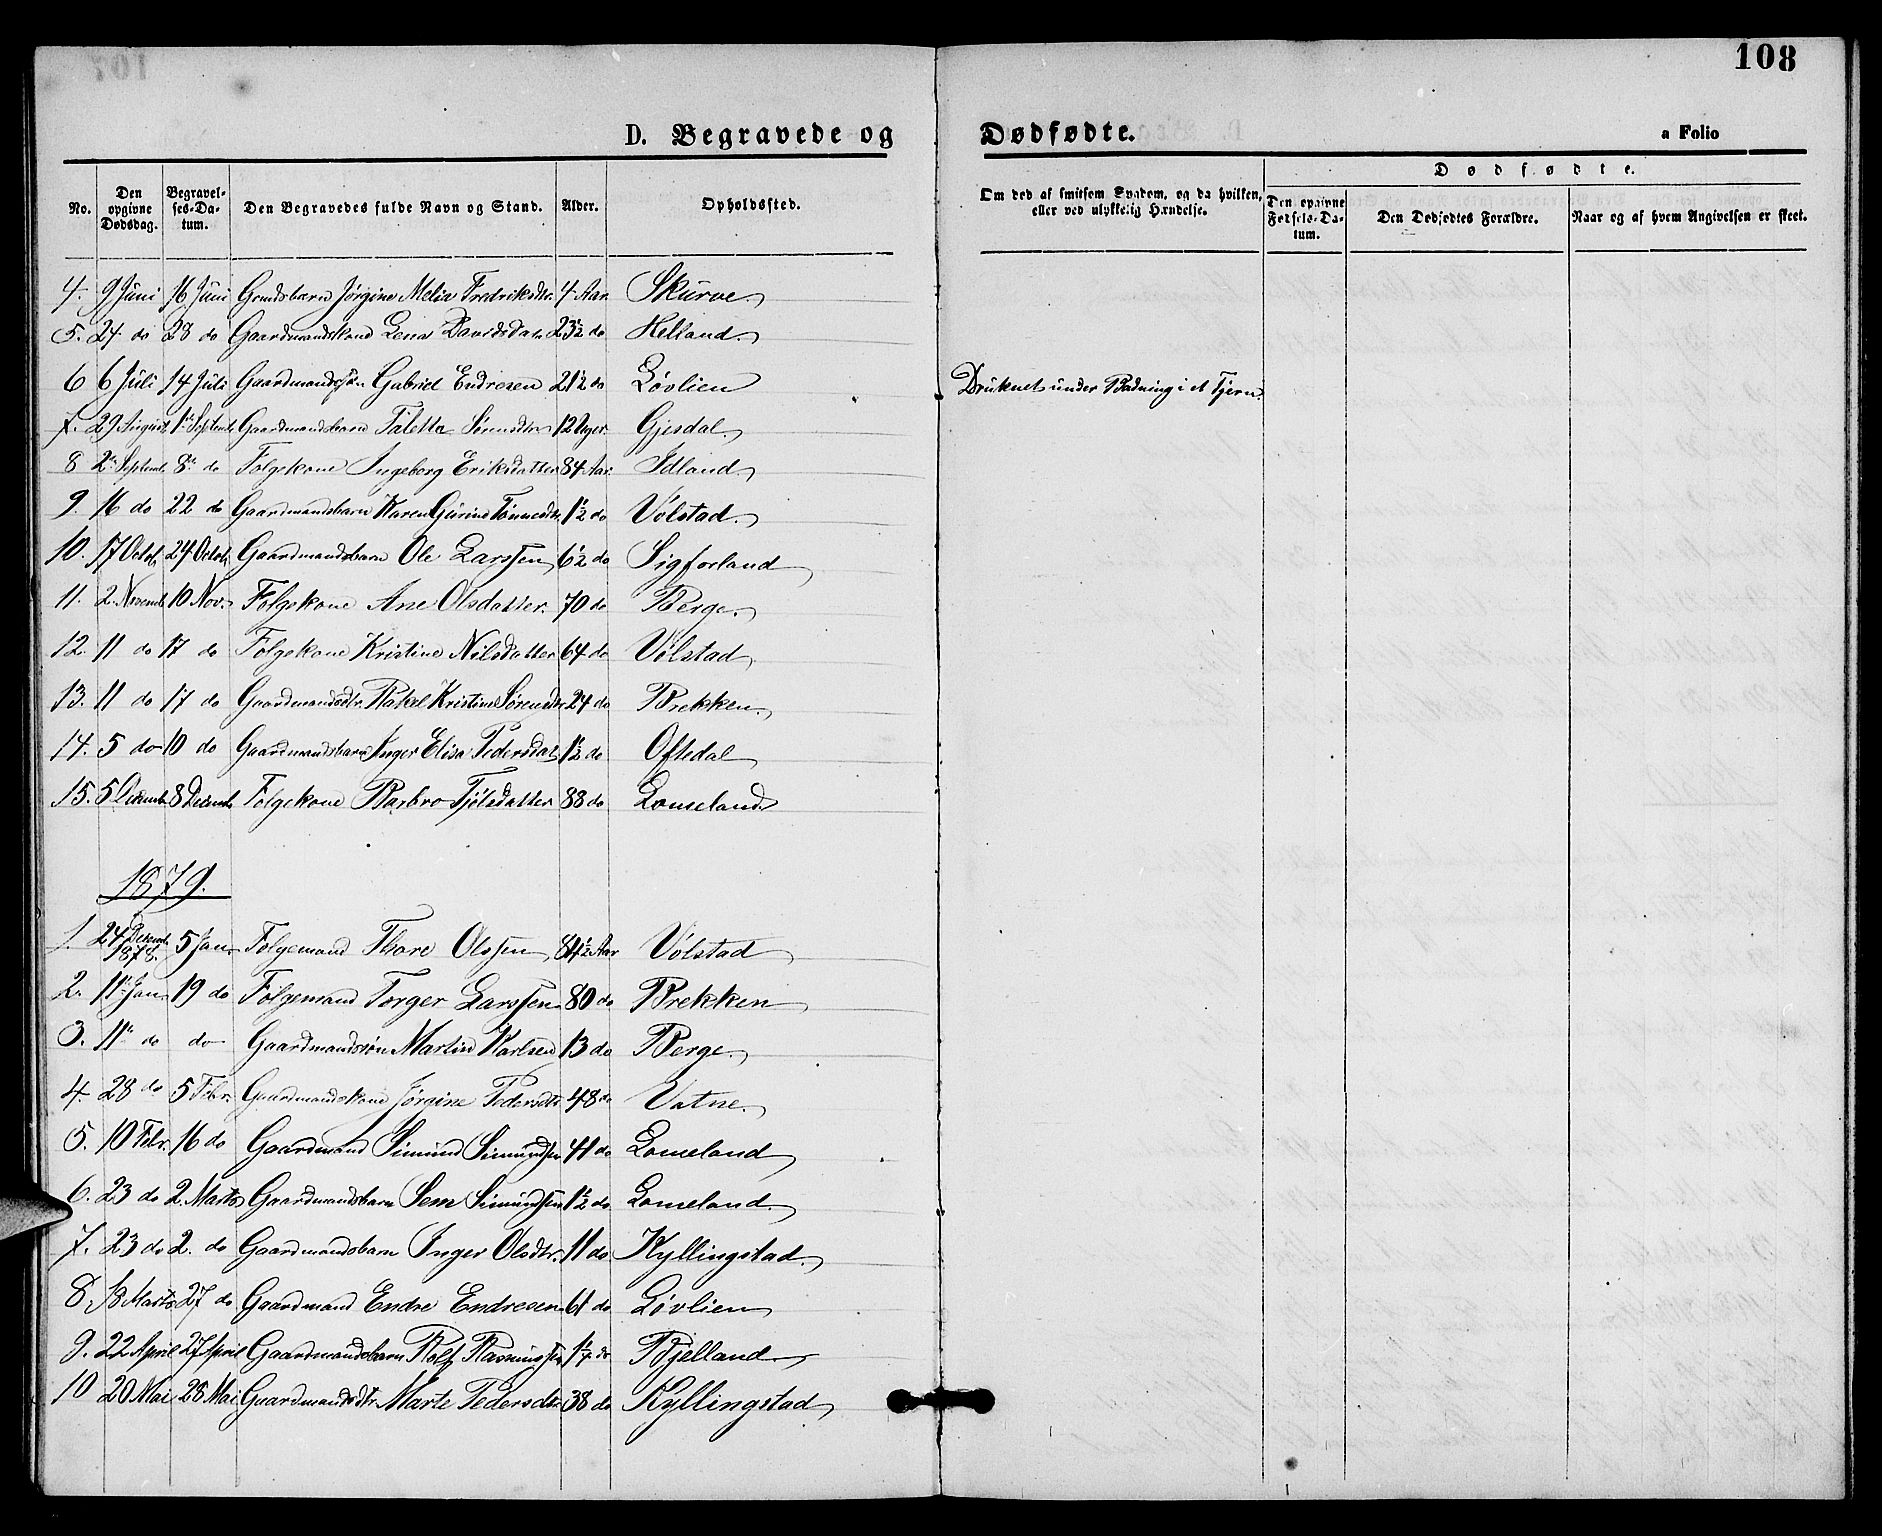 108
D. Begravede og Dødfødte.
a Folio
No. Den opgivne Dødsdag. Begravelses-Datum. Den Begravedes fulde Navn og Stand. Alder. Opholdssted. Om død af smitsom Sygdom, og da hvilken, eller ved ulykkelig Hændelse. Dødfødte. Den opgivne Fødsels-Datum. Den Dødfødtes Forældre. Naar og af hvem Angivelsen er skeet.
4. 9 Juni 16 Juni Gmdsbarn Jørgine Melia Fredriksdtr. 4 Aar Skurve.
5. 24 do 28 do Gaardmandskone Lena Davidsdatr 23½ do Helland.
6 6 Juli 14 Juli Gaardmandssøn Gabriel Endresen 21½ do Løvlien Druknet under Badning i et Tjern.
7. 29 August 1ste Septemb. Gaardmandsbarn Taletta Sørensdtr 12 Uger. Gjesdal.
8 2den Septemb. 8de do Folgekone Ingeborg Eriksdatter 84 Aar. Idland.
9. 16 do 22 do Gaardmandsbarn Karen Gurine Tønnesdtr. 1½ do Volstad.
10. 17 Octob. 24 Octob. Gaardmandsbarn Ole Larssen 6½ do Sigforland
11. 2. Novemb. 10 Nov. Folgekone Ane Olsdatter. 70 do Berge.
12. 11 do 17 do Folgekone Kristine Nilsdatter 64 do Vølstad
13. 11 do 17 do Gaardmandsdtr. Rakel Kristine Sørensdtr 24 do Brekken.
14. 5 do 10 do Gaardmandsbarn Inger Elisa Pedersdat. 1½ do Oftedal
15. 5 Decemb. 8 Decemb. Folgekone Barbro Tjølsdatter 88 do Lomeland
1879.
1. 24 Decemb. 1878. 5 Jan. Folgemand Thore Olssen 84½ Aar Volstad
2. 11te Jan. 19 do Folgemand Torger Larssen 80 do Brekken
3. 11te do do Gaardmandssøn Martin Karlsen 13 do Berge.
4. 28 do 5 Febr. Gaardmandskone Jørgine Pedersdtr 48 do Vatne.
5. 10 Febr. 16 do Gaardmand Simund Simundsen 41 do Lomeland
6. 23 do 2. Marts Gaardmandsbarn Sem Simundsen 1½ do Lomeland.
7. 23 do 2. do Gaardmandsbarn Inger Olsdtr. 11 do Kyllingstad.
8. 18 Marts 27 do Gaardmand Endre Endresen 61 do Løvlien
9. 22 April 27 April Gaardmandsbarn Rolf Rasmussen 1¼ do Bjelland
10 20 Mai 28 Mai Gaardmandsdtr Marte Pedersdtr 38 do Kyllingstad